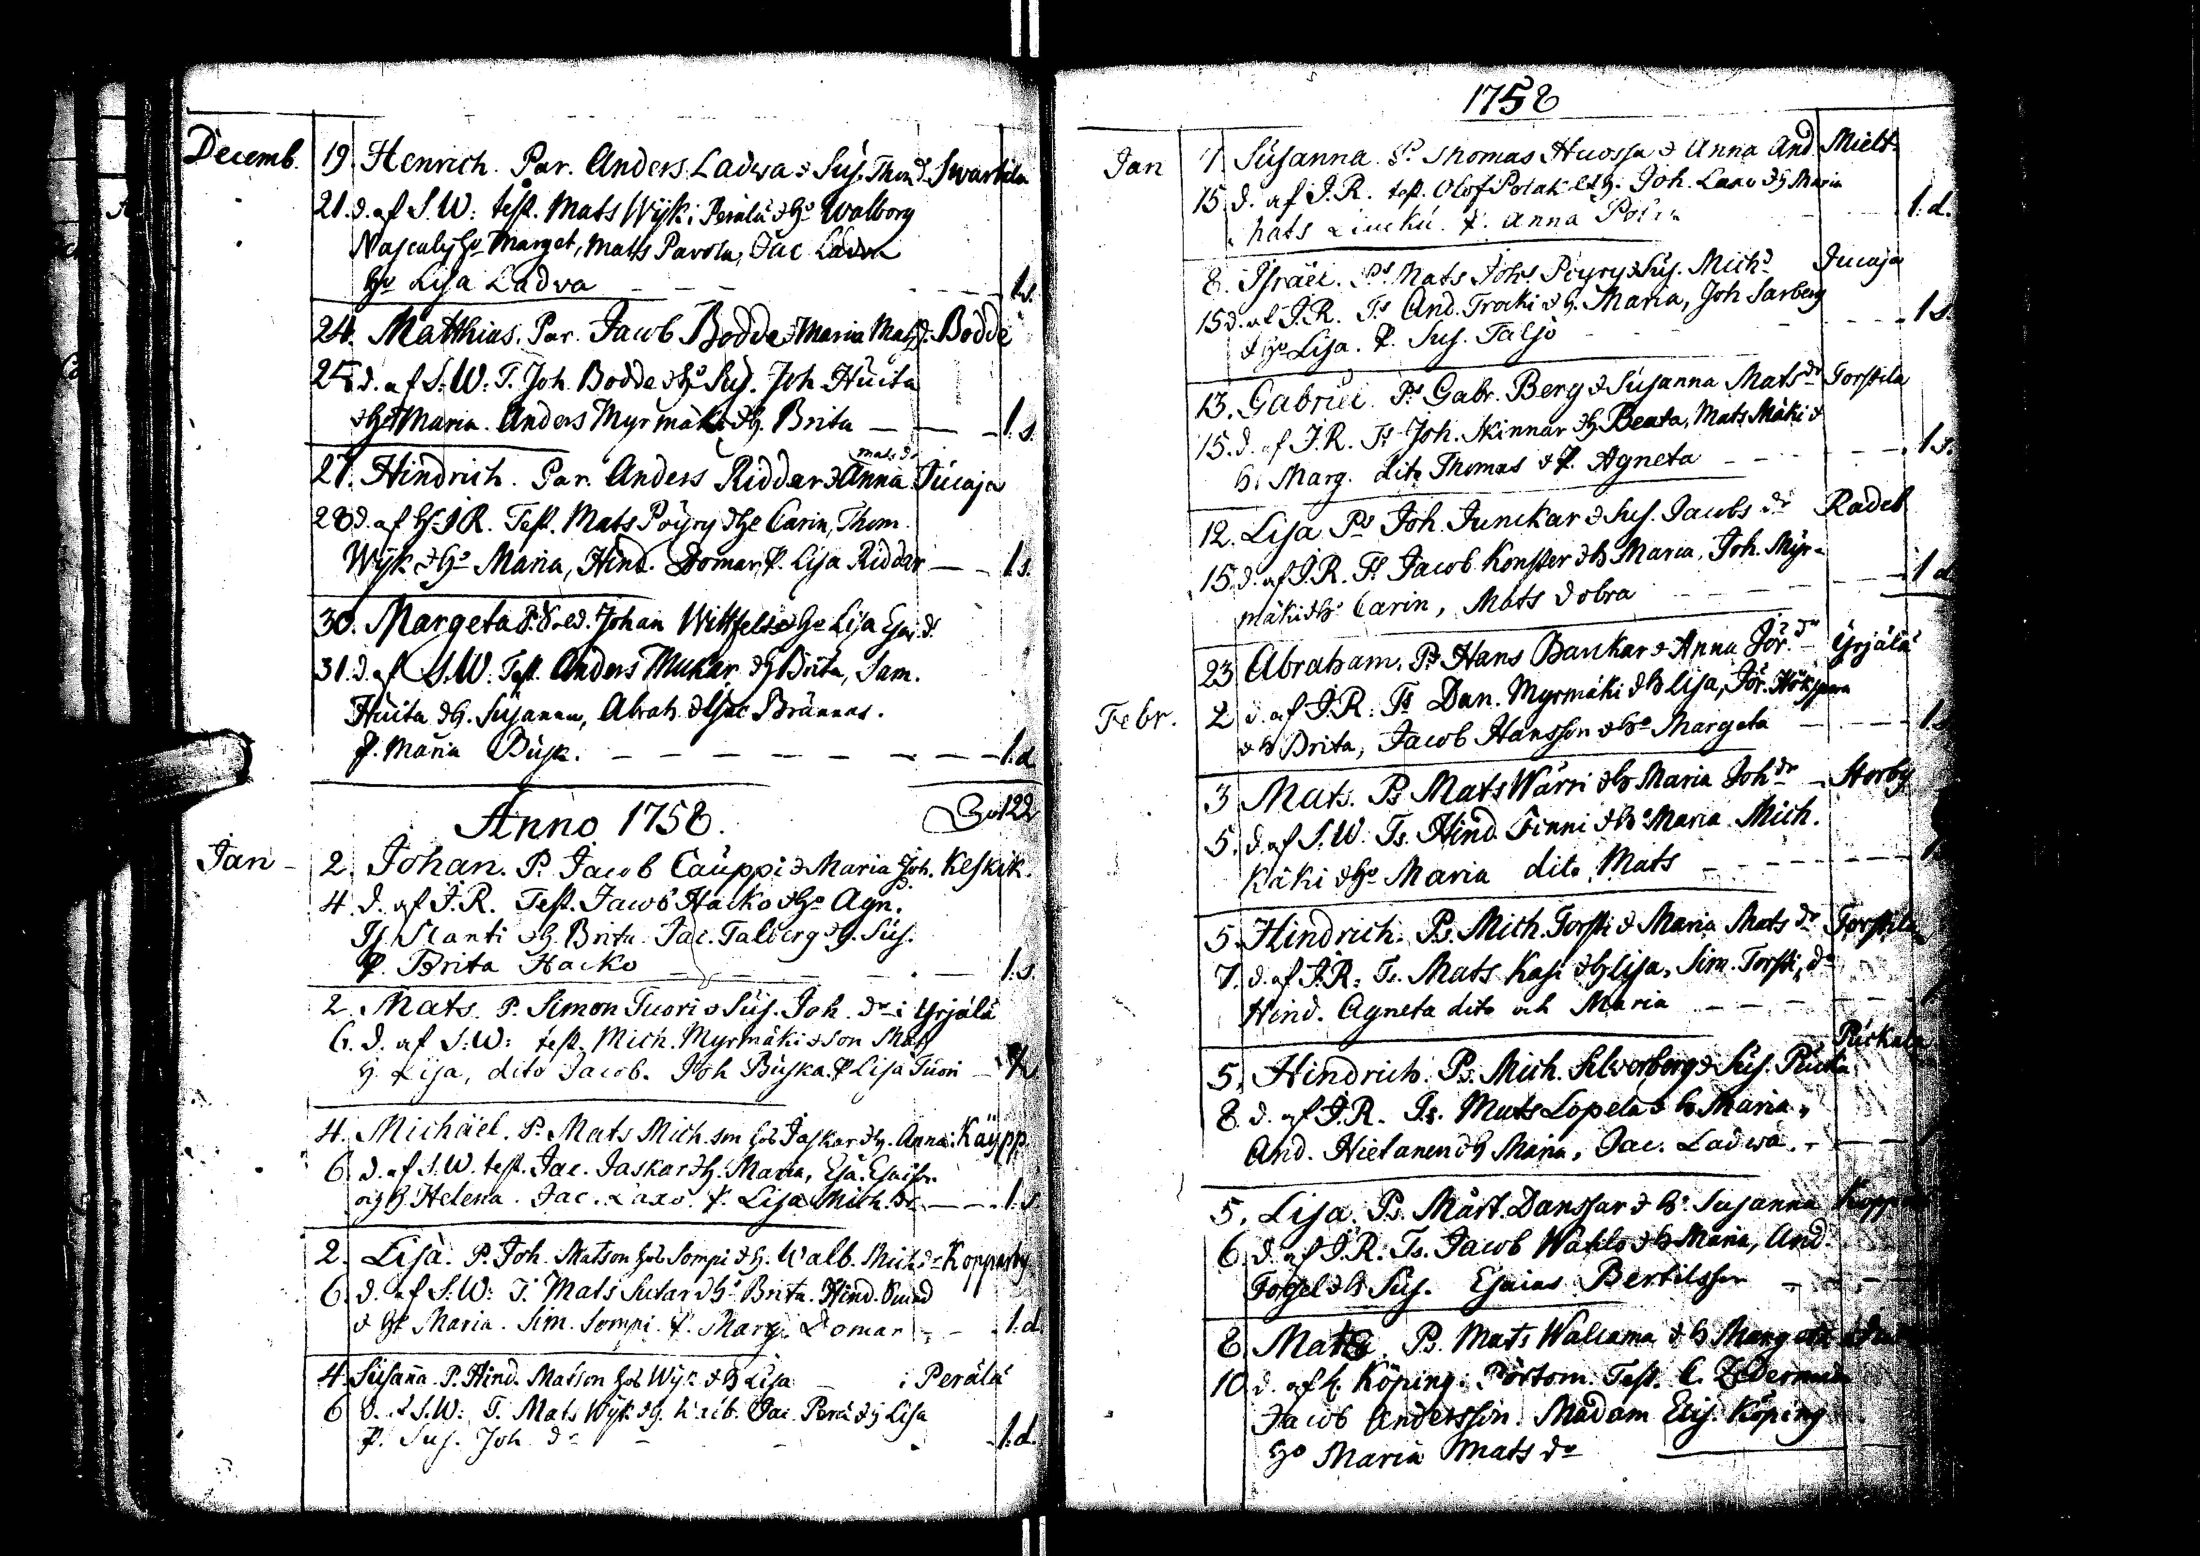 Decemb. 19. Henrich. Par. Anders Ladwa & Sus. Thom. d. Swartila
21. d. af S.W: test. Mats Wijk i Perälä & Ho Walborg
Ho Marget, Matts Pavola, Jac. Ladwa
Ho Lisa Ladwa — — — 1.s.
24. Matthias. Par. Jacob Bodde & Maria Mats d. Bodde
25 d. af S.W: T. Joh. Bodde & Ho Sus. Joh. Huita
& Ho Maria. Anders Myrmäki & H. Brita — — 1.s.
mats d.
27. Hindrich. Par. Anders Riddar & Anna Jucaja
28 d. af H. J.R. Test. Mats Pöyry & Ho Carin, Thom.
Wijk & Ho Maria, Hind. Domar, P. Lisa Riddar — 1.s.
30. Margeta Johan Wittfelt & Ho Lisa Esai. d.
31. d. af S.W. Test. Anders Munkar & H Brita, Sam.
Huita & H. Susanna, Abrah. Brännas.
P. Maria Busk. — — — — — 1.d.
122
Anno 1758.
Jan – 2. Johan. P. Jacob Cauppi & Maria Joh. d. Keskik.
4. d. af J.R. Test. Jacob Hacko & Ho Agn.
Slanti & H. Brita. Jac. Talberg & H. Sus.
P. Brita Hacko — — — 1.s.
2. Mats. P. Simon Tuori & Sus. Joh. dr i Yrjälä
6. d. af S.W: test. Mich. Myrmäki & son Mats
H. Lisa, dito Jacob. Joh Buska. P Lisa Tuori —
4. Michäel. P. Mats Mich.son Jaskar & H. Anna: Käypp.
6. d. af S.W. test. Jac. Jaskar & H. Maria, Esa. Esaison
H. Helena. Jac. Laxo. P. Lisa Mich. dr — — 1.s.
2. Lisa. P. Joh. Matson Sompi & H. Walb. Mich. dr Kopparby
6. d. af S.W: T. Mats Sutar & Ho Brita. Hind. Smed
& Ho Maria. Sim. Sompi. P. Marg. Domar — 1.d.
4. Susaña. P. Hind. Matson Wijk & H Lisa i Perälä
6 d. af S.W: T. Mats Wijk & H. Walb. Jac. Perä & H Lisa
P. Sus. Joh. dr — 1.d.
1758
Jan 7. Susanna. Ps Thomas Huossa & Anna And. Mielt.
15. d. af J.R. test. Olof Polak & H. Joh. Laxo & H Maria
P. Anna — 1.d.
8. Israel. Ps Mats Johs. Pöyry & Sus. Mich. dr Jucaja
15 d. af J.R. Ts And. Trocki & H. Maria, Joh Sarberg
& Ho Lisa. P. Sus. Taljo — 1.s.
13. Gabriel. Ps Gabr. Berg & Susanna Mats dr Torstila
15. d. af J.R. Ts Joh. Skinnar & H Beata, Mats Mäki &
H. Marg. dito Thomas & P. Agneta — — 1.s.
12. Lisa Ps Joh. Junckar & Sus. Jacobs dr Radeb
15. d. af J.R. Ts Jacob Konster & H Maria, Joh. Myr-
mäki & Ho Carin, Mats Dobra — — 1 d.
23 Abraham. Ps Hans Bankar & Anna Jör. dr – Yrjälä
Febr. 2 d. af J.R: Ts Dan. Myrmäki & H Lisa, Jör.
& H Brita, Jacob Hansson & Ho Margeta — 1.s
3 Mats. Ps Mats Wärri & H Maria Joh dr – Storby
5. d. af S.W. Ts. Hind. Finni & Ho Maria. Mich.
Käki & Ho Maria dito, Mats — — 1.
5. Hindrich. Ps. Mich. Torsti & Maria Mats dr Torstila
7. d. af J.R: Ts. Mats Kasi & H Lisa, Sim. Torsti, do
Hind. Agneta dito och Maria — — 1
Puckala
5. Hindrich. Ps. Mich. Silverberg & Sus. Pucka
8. d. af J.R. Ts. Mats Lopela & H Maria,
And. Hietanen & H Maria, Jac. Ladwa. — 1
5. Lisa. Ps. Mårt. Danssar & Ho. Susanna Koppar
6. d. af J.R: Ts. Jacob Wahlo & H Maria, And.
& H Sus. Esaias Bertilsson — —
8. Mats. Ps. Mats Waliama & H Marget
10. d. af C. Köping i Pörtom. Test. C.
Jacob Andersson. Madam Elis. Köping
Ho Maria Mats dr